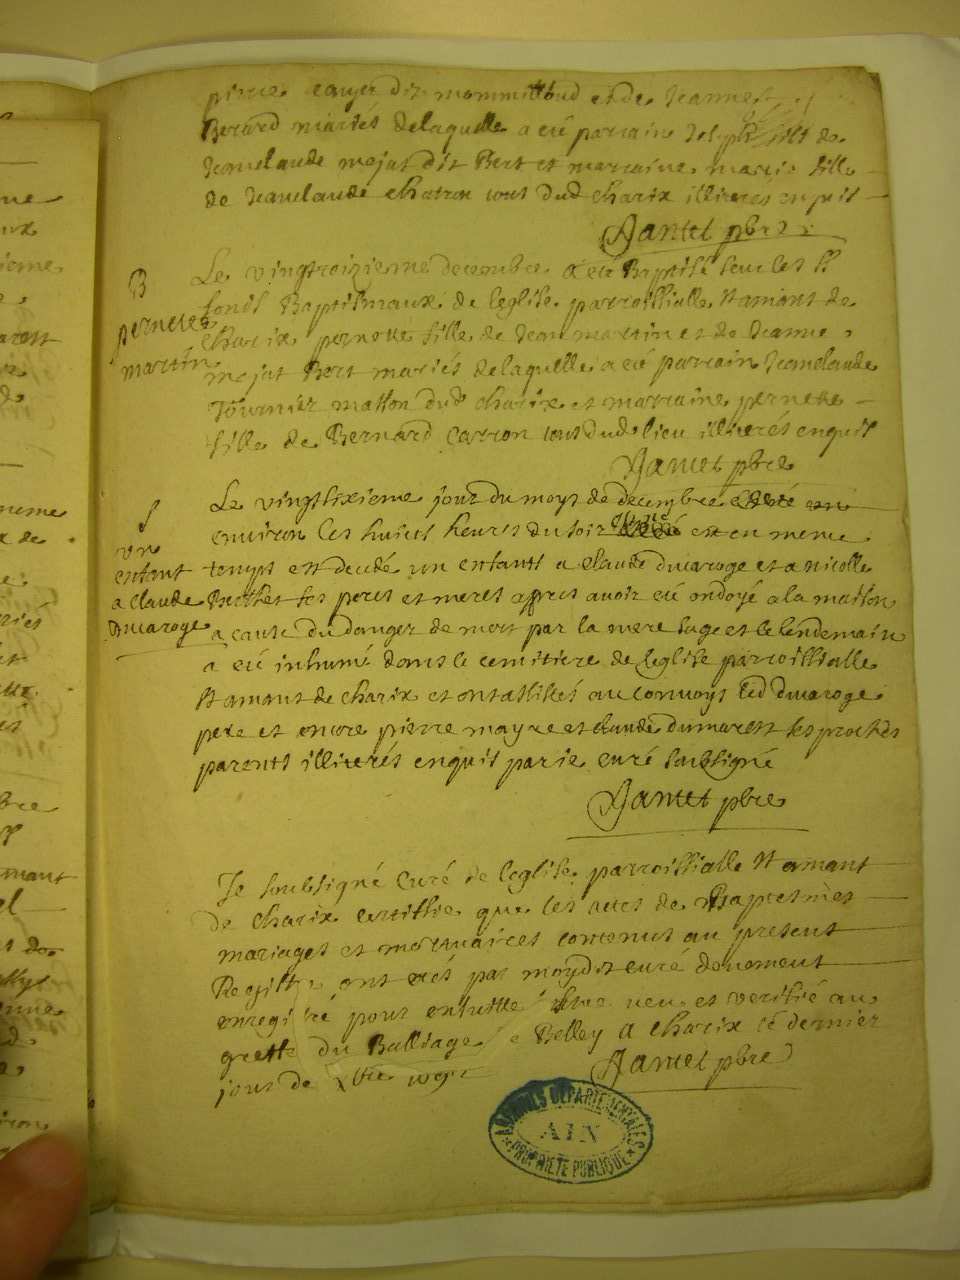 pierre cayer dit mommillioud et de Jeanne
Berard mariés de laquelle a eté parrain fils de
Jeanclaude mojat dit Bert et marraine marie fille
de Jeanclaude chatron tous dud charix illiteres enquit
Jantet pbre
B
pernette
martin
Le vingtroizieme decembre a eté Baptisé sur les ss
fonds Baptismaux de leglise parroissialle st amant de
charix pernette fille de Jean martin et de Jeanne
mojat Bert mariés de laquelle a eté parrain Jeanclaude
Tournier masson dud charix et marraine pernette
fille de Bernard Carron tous dud lieu illiterés enquit
Jantet pbre
S
un
enfant
a claude
Ducaroge
Le vingtsixieme jour du moys de decembre
environ les huict heures du soir est en meme
temps est decedé un enfant a Claude ducaroge et a nicolle
Berthet ses peres et meres apprés avoir eté ondoyé a la maison
a cause du danger de mort par la mere sage et le lendemain
a eté inhumé dans le cemitiere de leglise parroissialle
st amant de charix et ont assistés au convoys led ducaroge
pere et encore pierre mayre et claude dumarest ses proches
parents illiterés enquit par ie curé soubsigné
Jantet pbre
Je soubsigné curé de leglise parroissialle st amant
De charix certiffie que les actes de Baptesmes
mariages et mortuaires contenus au present
Registre ont etés par moydit curé deuement
enregistré pour ensuitte estre veu et verifié au
greffe du Balliage de Belley a charix le dernier
jour de Xbre
Jantet pbre
ARCHIVES DÉPARTEMENTALES
AIN
PROPRIÉTÉ PUBLIQUE